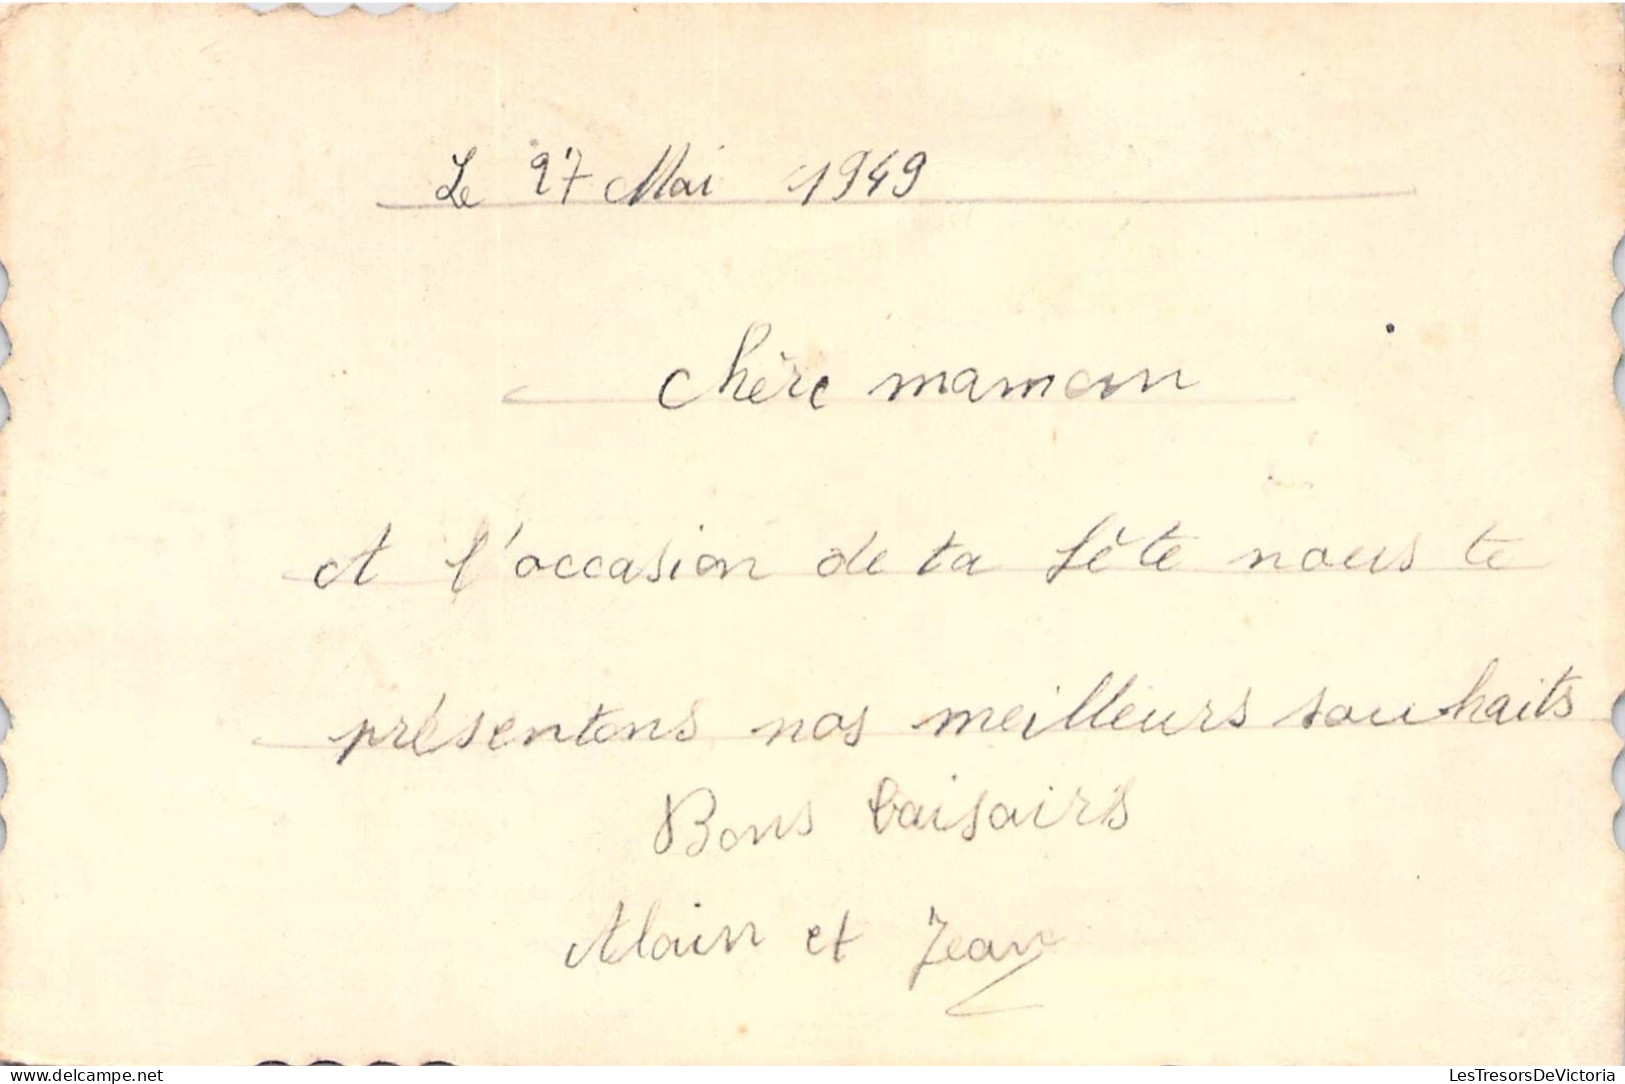 Le 27 Mai 1949
chère maman
A l'occasion de ta fête nous te
présentons nos meilleurs souhaits
Bons baisairs
Alain et Jean
www.delcampe.net
LesTresorsDeVictoria